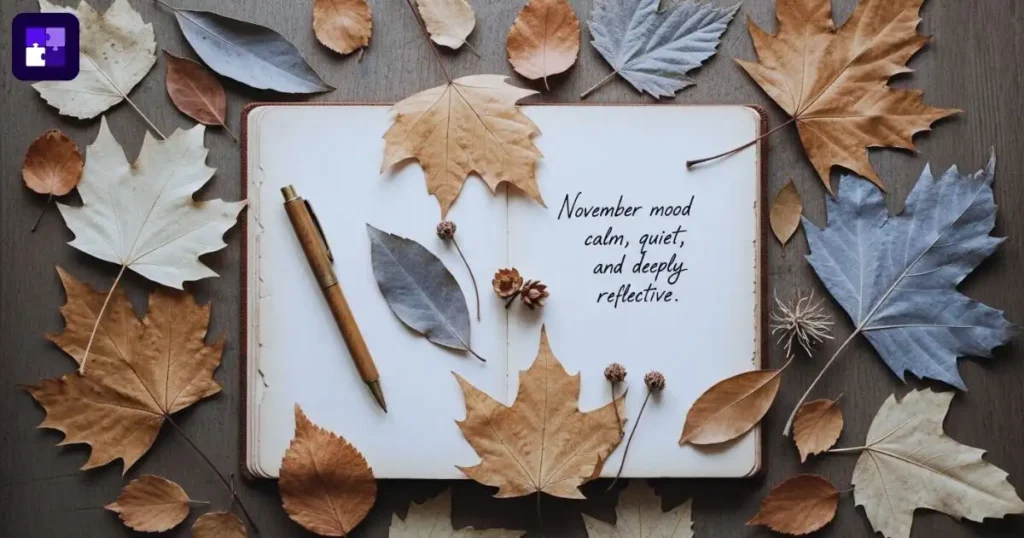 November mood
calm, quiet,
and deeply
reflective.